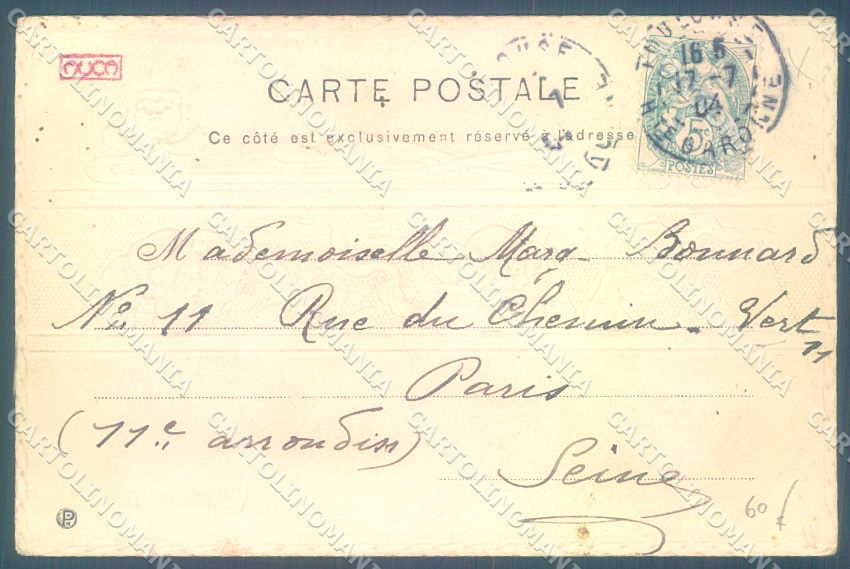 AUCA
CARTE POSTALE
Ce côté est exclusivement réservé à l'adresse
TOULOUSE
16 5
17 - 7
04
GARONNE
5c
POSTES
Mademoiselle Marg. Bonnard
No. 11 Rue du Chemin. Vert
11
Paris
(11e arrondiss)
Seine
60
CARTOLINOMANIA